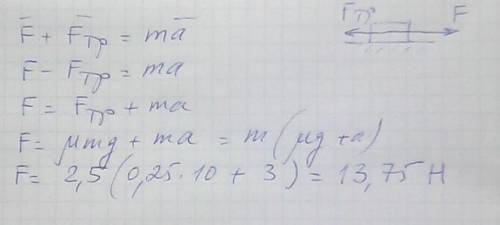 F̄ + F̄тр = mā
F − Fтр = ma
F = Fтр + ma
F = μmg + ma = m(μg + a)
F = 2,5(0,25·10 + 3) = 13,75 Н
Fтр F